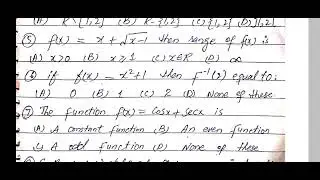 (A) R-[1,2] (B) R-{1,2} (C) {1,2} (D) ]1,2[
⑤ f(x) = x + √x-1 then range of f(x) is
(A) x>0 (B) x ≥ 1 (C) x∈R (D) ∞
⑥ if f(x) = x²+1 then f⁻¹(2) equal to:
(A) 0 (B) 1 (C) 2 (D) None of these
⑦ The function f(x) = cosx + secx is
(A) A constant function, (B) An even function
A odd function (D) None of these